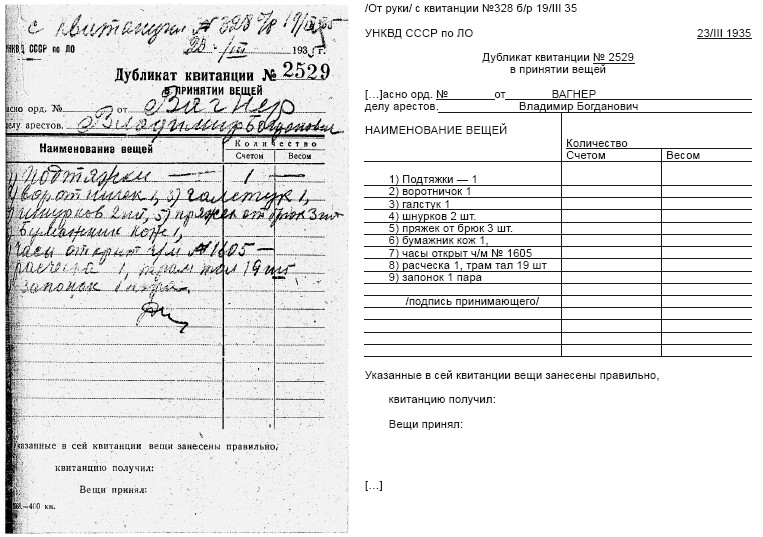 с квитанции №328 б/р 19/III 35
УНКВД СССР по ЛО
23/III 1935 г.
Дубликат квитанции № 2529
В ПРИНЯТИИ ВЕЩЕЙ
асно орд. № от Вагнер
делу арестов. Владимир Богданович
Наименование вещей
Количество
Счетом Весом
подтяжки — 1 —
воротничек 1, 3) галстук 1,
шнурков 2 шт, 5) пряжек от брюк 3 шт
бумажник кож 1,
часы открыт ч/м № 1605 —
расческа 1, трам тал 19 шт
запонок 1 пара.
Указанные в сей квитанции вещи занесены правильно,
квитанцию получил:
Вещи принял:
—400 кн.
/От руки/ с квитанции №328 б/р 19/III 35
УНКВД СССР по ЛО 23/III 1935
Дубликат квитанции № 2529
в принятии вещей
[...]асно орд. № от ВАГНЕР
делу арестов. Владимир Богданович
НАИМЕНОВАНИЕ ВЕЩЕЙ
Количество
Счетом Весом
1) Подтяжки — 1
2) воротничок 1
3) галстук 1
4) шнурков 2 шт.
5) пряжек от брюк 3 шт.
6) бумажник кож 1,
7) часы открыт ч/м № 1605
8) расческа 1, трам тал 19 шт
9) запонок 1 пара
/подпись принимающего/
Указанные в сей квитанции вещи занесены правильно,
квитанцию получил:
Вещи принял:
[...]